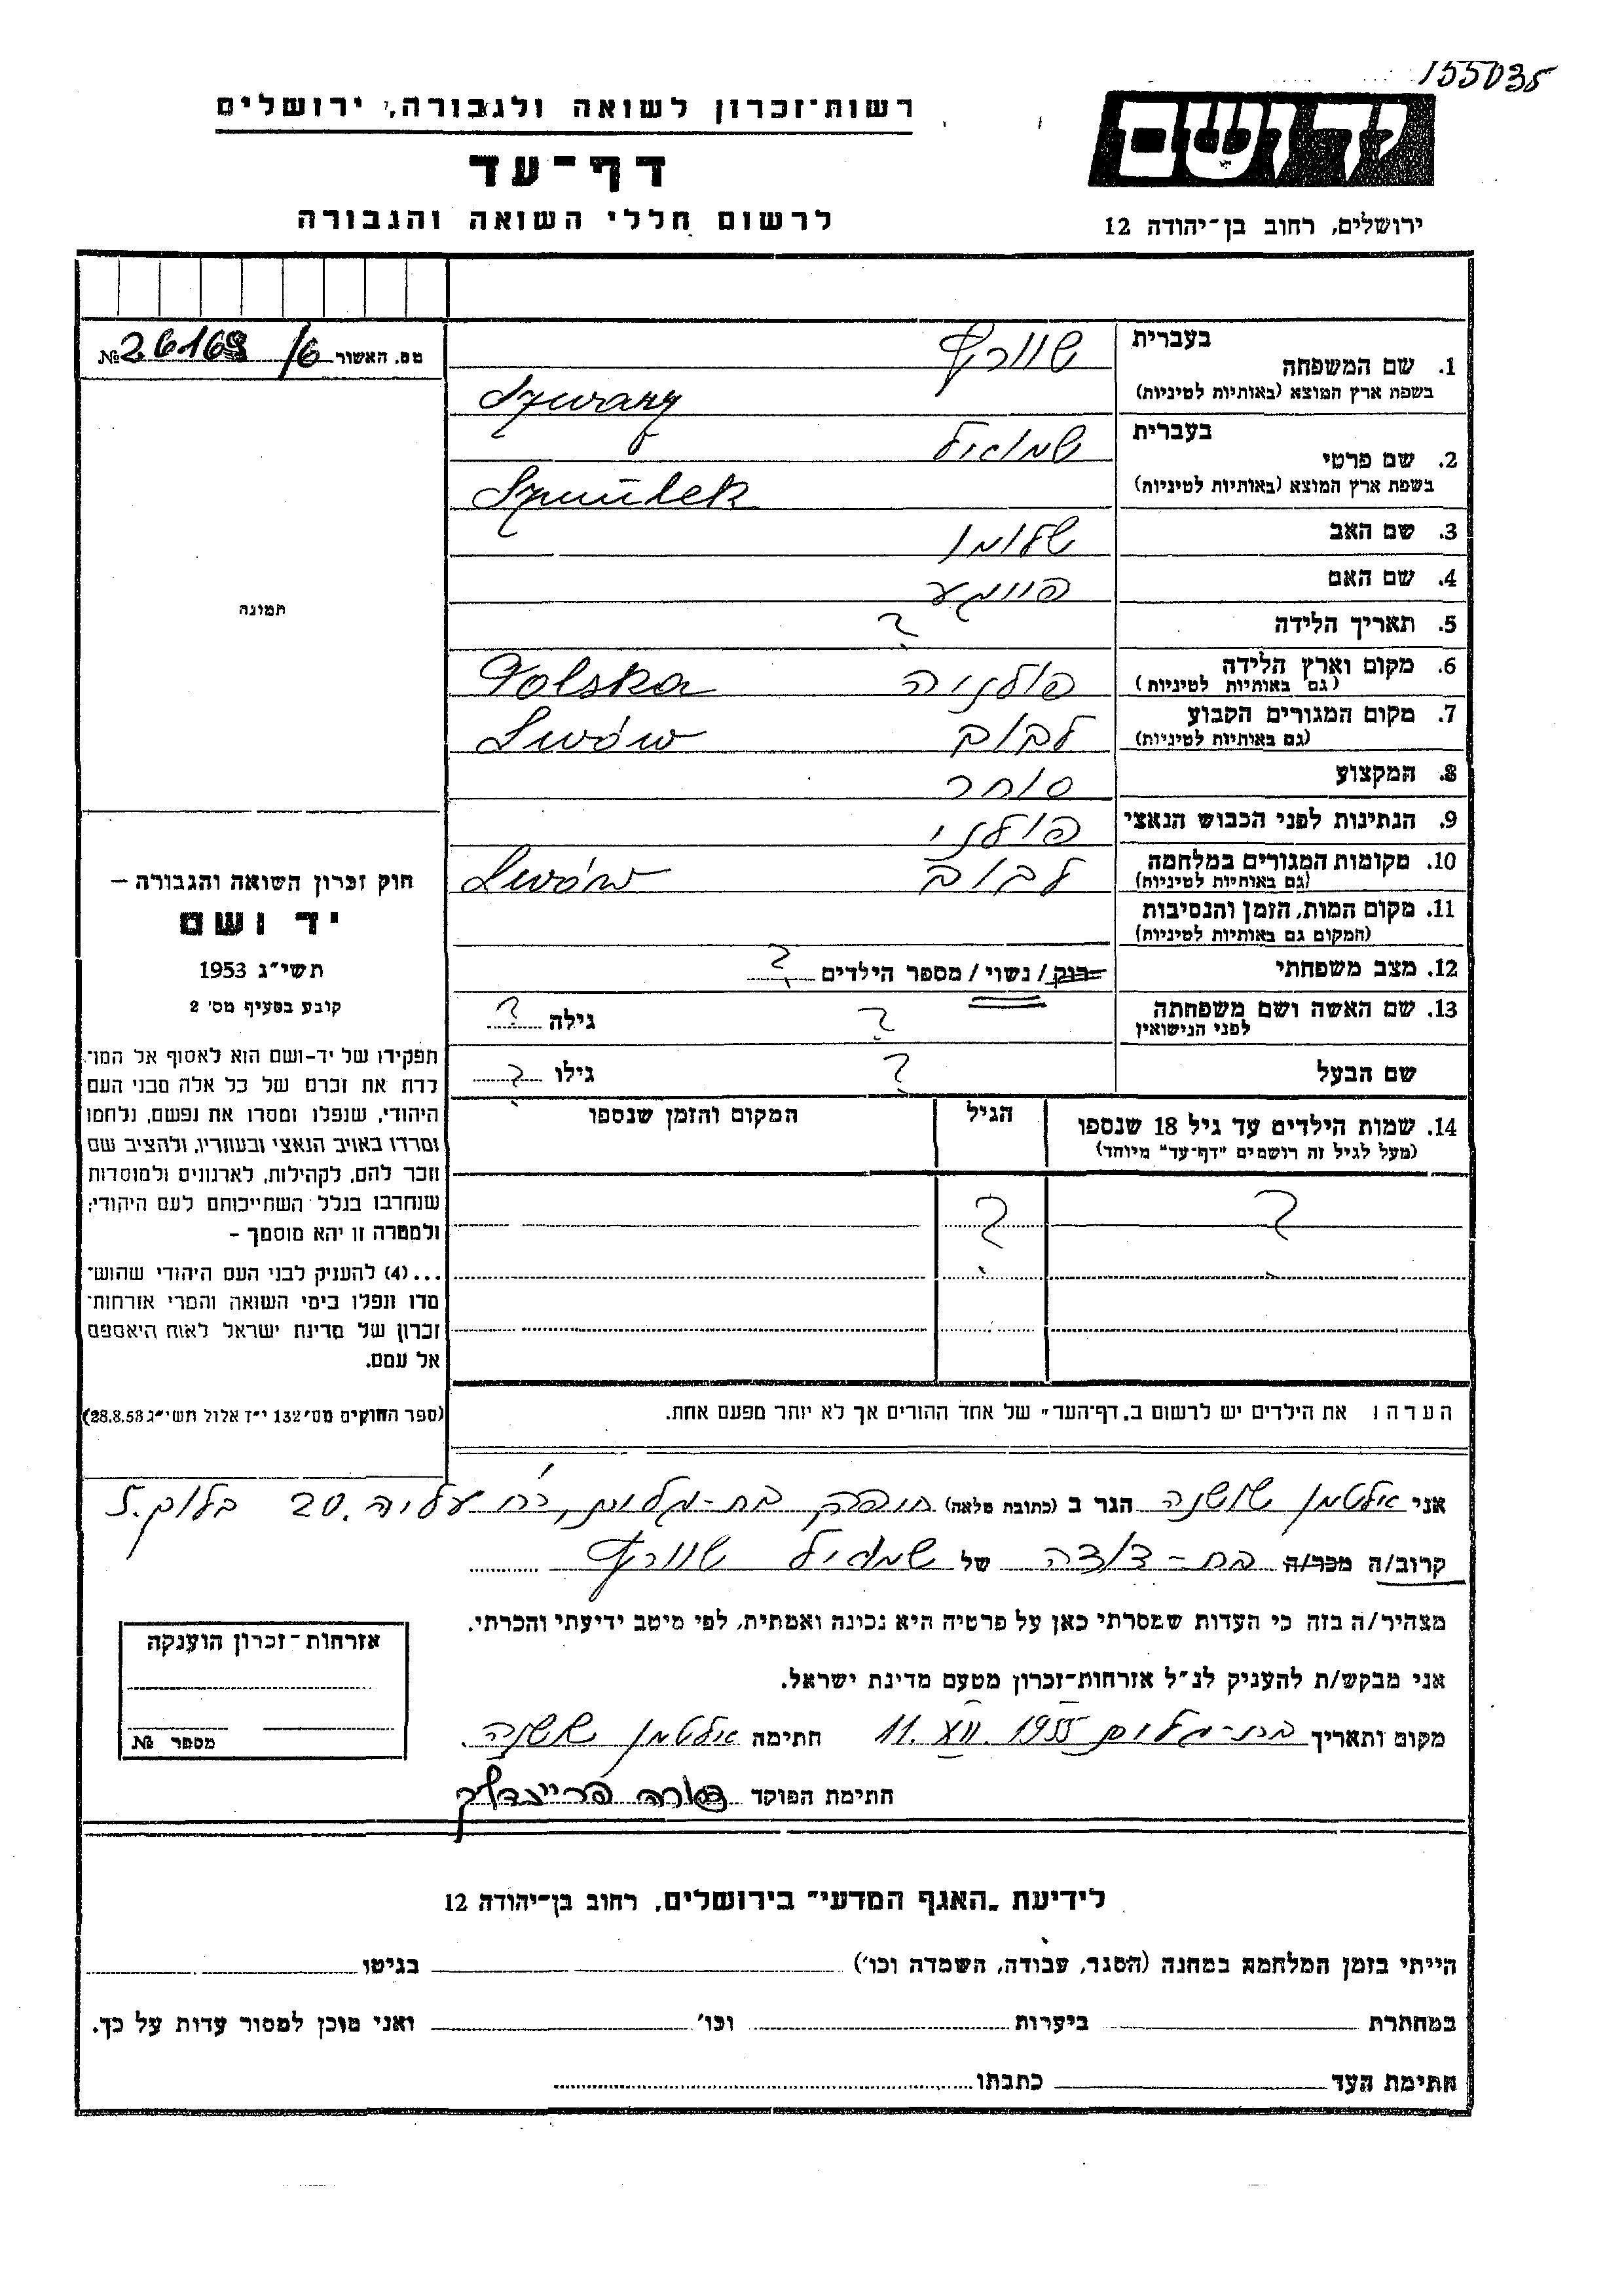 155035
רשות־זכרון לשואה ולגבורה, ירושלים
יד ושם
דף־עד
לרשום חללי השואה והגבורה
ירושלים, רחוב בן־יהודה 12
מס. האשור 16/ 26169 №
בעברית שוורץ
1. שם המשפחה
בשפת ארץ המוצא (באותיות לטיניות) Szwarz
בעברית שמואל
2. שם פרטי
בשפת ארץ המוצא (באותיות לטיניות) Szmulek
3. שם האב שלומו
4. שם האם
5. תאריך הלידה ?
6. מקום וארץ הלידה פולניה Polska
(גם באותיות לטיניות)
7. מקום המגורים הקבוע לבוב Lwów
(גם באותיות לטיניות)
8. המקצוע סוחר
9. הנתינות לפני הכבוש הנאצי פולני
10. מקומות המגורים במלחמה לבוב Lwów
(גם באותיות לטיניות)
11. מקום המות, הזמן והנסיבות
(המקום גם באותיות לטיניות)
12. מצב משפחתי רוק / נשוי / מספר הילדים ?
13. שם האשה ושם משפחתה ? גילה ?
לפני הנישואין
שם הבעל ? גילו ?
14. שמות הילדים עד גיל 18 שנספו הגיל המקום והזמן שנספו
(מעל לגיל זה רושמים "דף־עד" מיוחד)
? ?
הערה: את הילדים יש לרשום ב„דף־העד" של אחד ההורים אך לא יותר מפעם אחת.
תמונה
חוק זכרון השואה והגבורה –
יד ושם
תשי"ג 1953
קובע בסעיף מס' 2
תפקידו של יד-ושם הוא לאסוף אל המו־
לדת את זכרם של כל אלה מבני העם
היהודי, שנפלו ומסרו את נפשם, נלחמו
ומרדו באויב הנאצי ובעוזריו, ולהציב שם
וזכר להם, לקהילות, לארגונים ולמוסדות
שנחרבו בגלל השתייכותם לעם היהודי;
ולמטרה זו יהא מוסמך –
...(4) להעניק לבני העם היהודי שהוש־
מדו ונפלו בימי השואה והמרי אזרחות־
זכרון של מדינת ישראל לאות היאספם
אל עמם.
(ספר החוקים מס' 132 י"ז אלול תשי"ג 28.8.53)
אני אלטמן שושנה הגר ב (כתובת מלאה) חיפה בת-גלים, רח' עליה. 20 בלוק. 5
קרוב/ה מכר/ה בת-דודה של שמואל שוורץ
מצהיר/ה בזה כי העדות שמסרתי כאן על פרטיה היא נכונה ואמתית, לפי מיטב ידיעתי והכרתי.
אני מבקש/ת להעניק לנ"ל אזרחות-זכרון מטעם מדינת ישראל.
מקום ותאריך בת-גלים 11. XII. 1955 חתימה אלטמן שושנה
חתימת הפוקד שרה
אזרחות-זכרון הוענקה
מספר №
לידיעת „האגף המדעי" בירושלים, רחוב בן־יהודה 12
הייתי בזמן המלחמה במחנה (הסגר, עבודה, השמדה וכו') בגיטו
במחתרת ביערות וכו' ואני מוכן למסור עדות על כך.
חתימת העד כתבתו